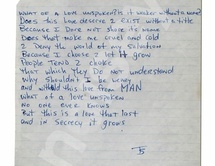 WHAT OF A LOVE UNSPOKEN? IS IT WEAKER WITHOUT A NAME?
DOES THIS LOVE DESERVE 2 EXIST WITHOUT A TITLE
BECAUSE I DARE NOT SHARE ITS NAME
DOES THAT MAKE ME CRUEL AND COLD
2 DENY THE WORLD OF MY SALVATION
BECAUSE I CHOOSE 2 LET IT GROW
PEOPLE TEND 2 CHOKE
THAT WHICH THEY DO NOT UNDERSTAND
WHY SHOULDN'T I BE WEARY
AND WITHHOLD THIS LOVE FROM MAN
WHAT OF A LOVE UNSPOKEN
NO ONE EVER KNOWS
BUT THIS IS A LOVE THAT LAST
AND IN SECRECY IT GROWS